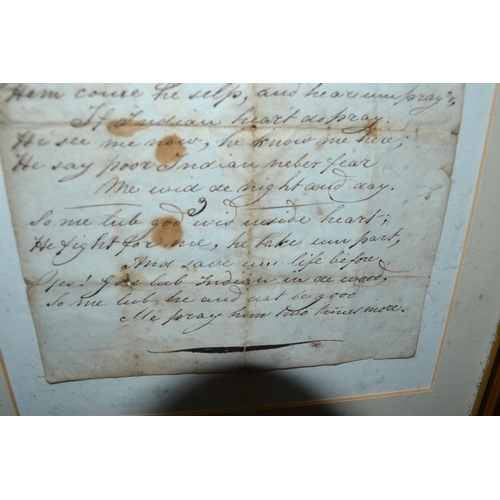 Hem come he self, and hear um pray,
If Indian heart do pray.
He see me now, he know me here,
He say poor Indian neber fear
Me wid de night and day.
3
So me lub god wid inside heart;
He fight for me, he take um part,
And save um life before,
Yes! God lub Indian in de wood,
So me lub he and dat be good
Me pray him two times more.